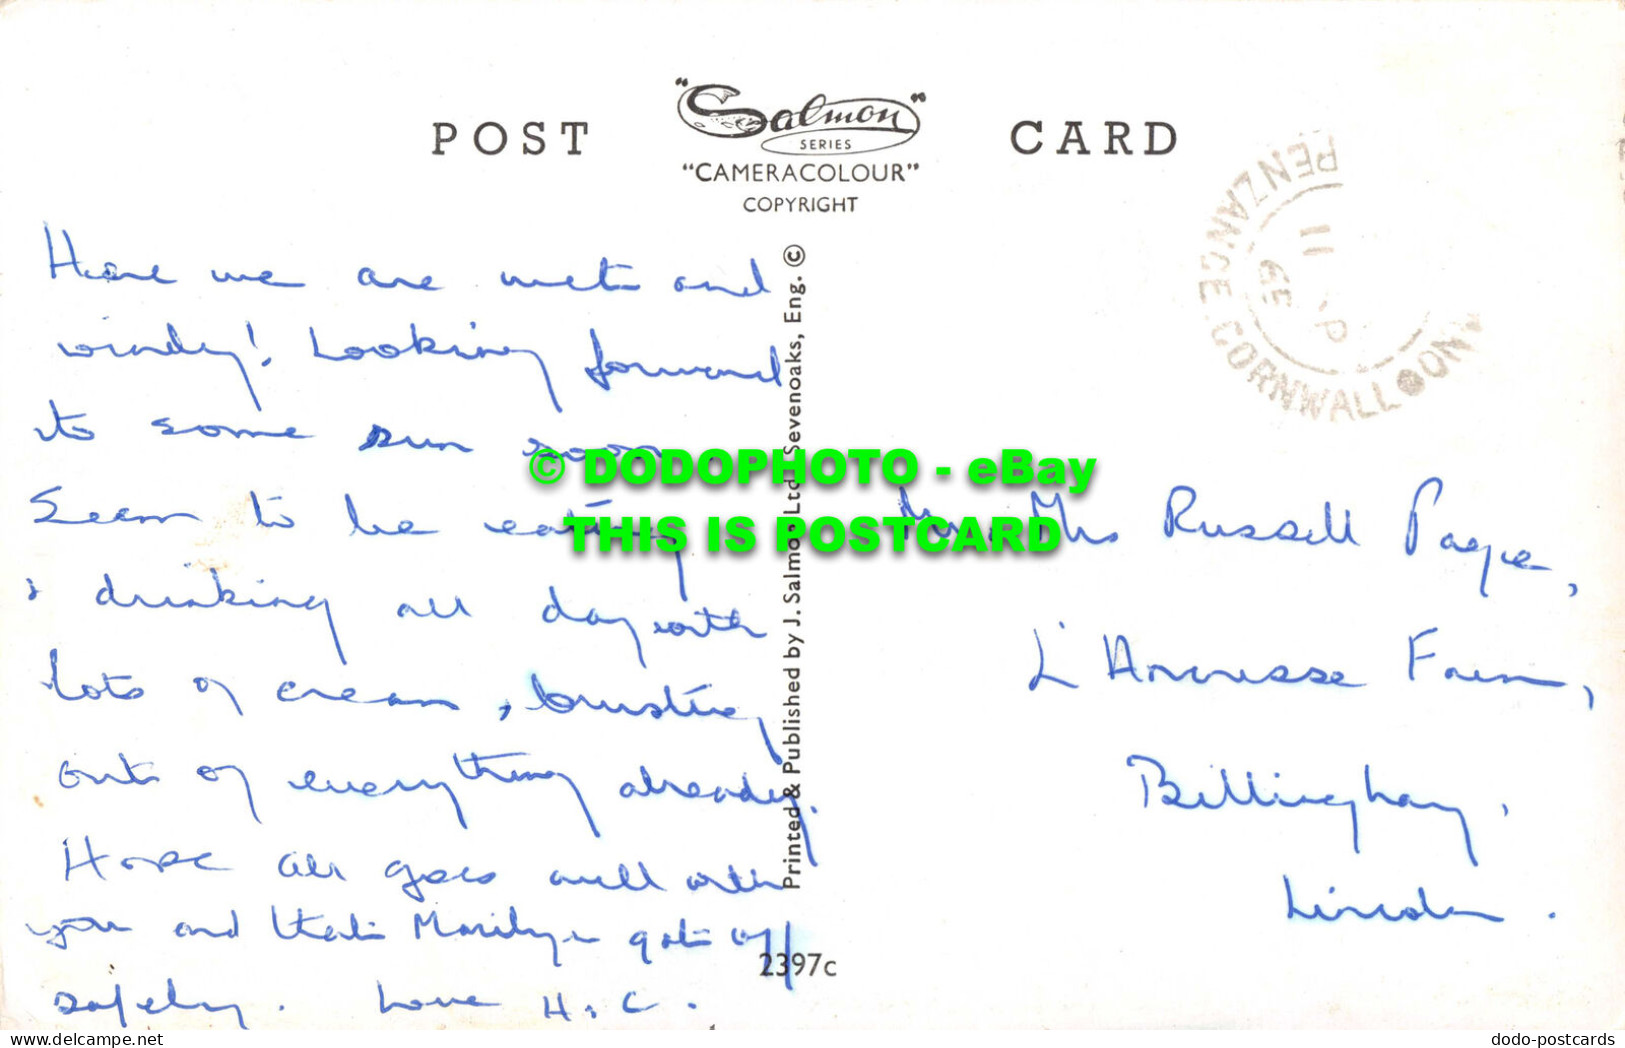 POST CARD
"Salmon"
SERIES
"CAMERACOLOUR"
COPYRIGHT
PENZANCE CORNWALL
11
Here we are wet and
windy! Looking forward
to some sun soon.
Seem to be eating
& drinking all day with
lots of cream, bursting
out of everything already.
Hope all goes well with
you and that Marilyn got off
safely. Love H.C.
Printed & Published by J. Salmon Ltd., Sevenoaks, Eng. ©
2397c
© DODOPHOTO - eBay
THIS IS POSTCARD
Mr. Mrs Russell Page,
Farm,
Billinghay,
Lincoln.
delcampe.net
dodo-postcards